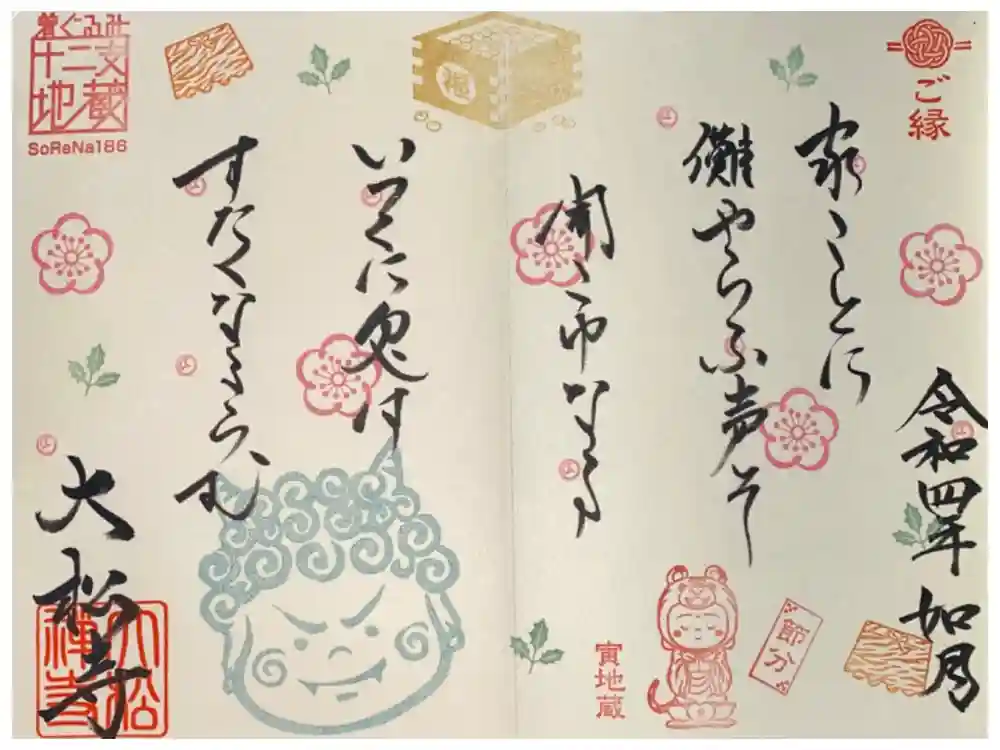 ご縁
令和四年 如月
家ことに
儺やらふ声そ
聞ゆなる
いつくに鬼は
すたくなるらむ
大松寺
大松禅寺
着ぐるみ
十二支
地蔵
SoReNa186
福
節分
寅地蔵